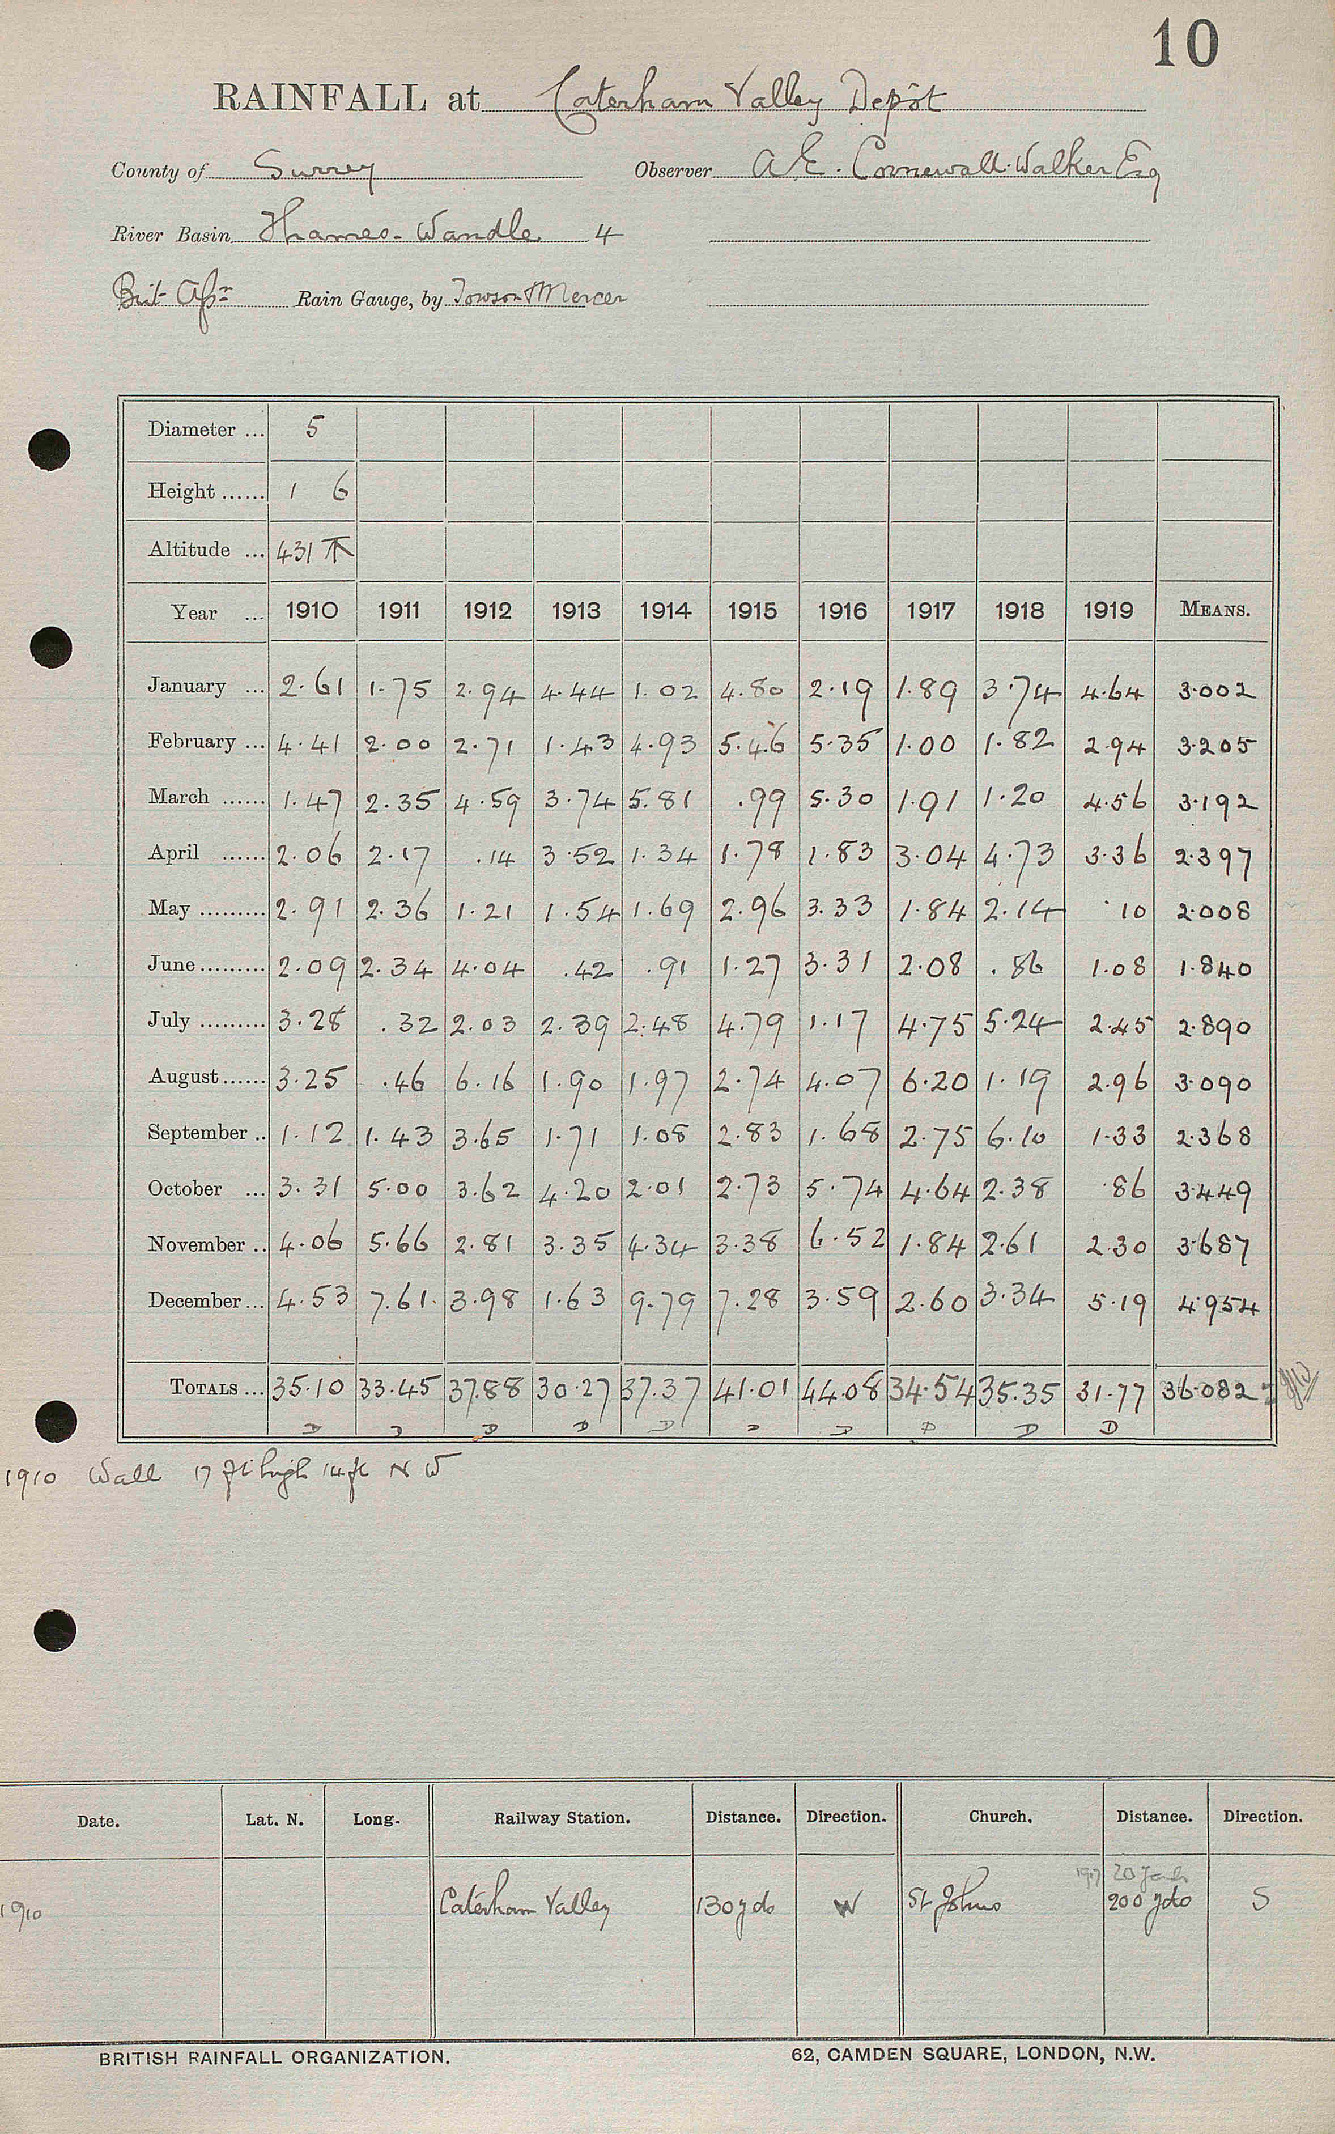 10
RAINFALL at Caterham Valley Depôt
County of Surrey Observer A E. Cornewall-Walker Esq
River Basin Thames-Wandle 4
Brit Assn Rain Gauge, by Towson & Mercer
Diameter ... 5
Height ...... 1 6
Altitude ... 431
Year ... 1910 1911 1912 1913 1914 1915 1916 1917 1918 1919 MEANS.
January ... 2.61 1.75 2.94 4.44 1.02 4.80 2.19 1.89 3.74 4.64 3.002
February ... 4.41 2.00 2.71 1.43 4.93 5.46 5.35 1.00 1.82 2.94 3.205
March ...... 1.47 2.35 4.59 3.74 5.81 .99 5.30 1.91 1.20 4.56 3.192
April ...... 2.06 2.17 .14 3.52 1.34 1.78 1.83 3.04 4.73 3.36 2.397
May ......... 2.91 2.36 1.21 1.54 1.69 2.96 3.33 1.84 2.14 .10 2.008
June ......... 2.09 2.34 4.04 .42 .91 1.27 3.31 2.08 .86 1.08 1.840
July ......... 3.28 .32 2.03 2.39 2.48 4.79 1.17 4.75 5.24 2.45 2.890
August ...... 3.25 .46 6.16 1.90 1.97 2.74 4.07 6.20 1.19 2.96 3.090
September .. 1.12 1.43 3.65 1.71 1.08 2.83 1.68 2.75 6.10 1.33 2.368
October ... 3.31 5.00 3.62 4.20 2.01 2.73 5.74 4.64 2.38 .86 3.449
November .. 4.06 5.66 2.81 3.35 4.34 3.38 6.52 1.84 2.61 2.30 3.687
December ... 4.53 7.61 3.98 1.63 9.79 7.28 3.59 2.60 3.34 5.19 4.954
TOTALS ... 35.10 33.45 37.88 30.27 37.37 41.01 44.08 34.54 35.35 31.77 36.082
D D D D D D D D D D
1910 Wall 17 ft high 14 ft N W
Date. Lat. N. Long. Railway Station. Distance. Direction. Church. Distance. Direction.
1917 20 yards
1910 Caterham Valley 130 yds W St Johns 200 yds S
BRITISH RAINFALL ORGANIZATION. 62, CAMDEN SQUARE, LONDON, N.W.